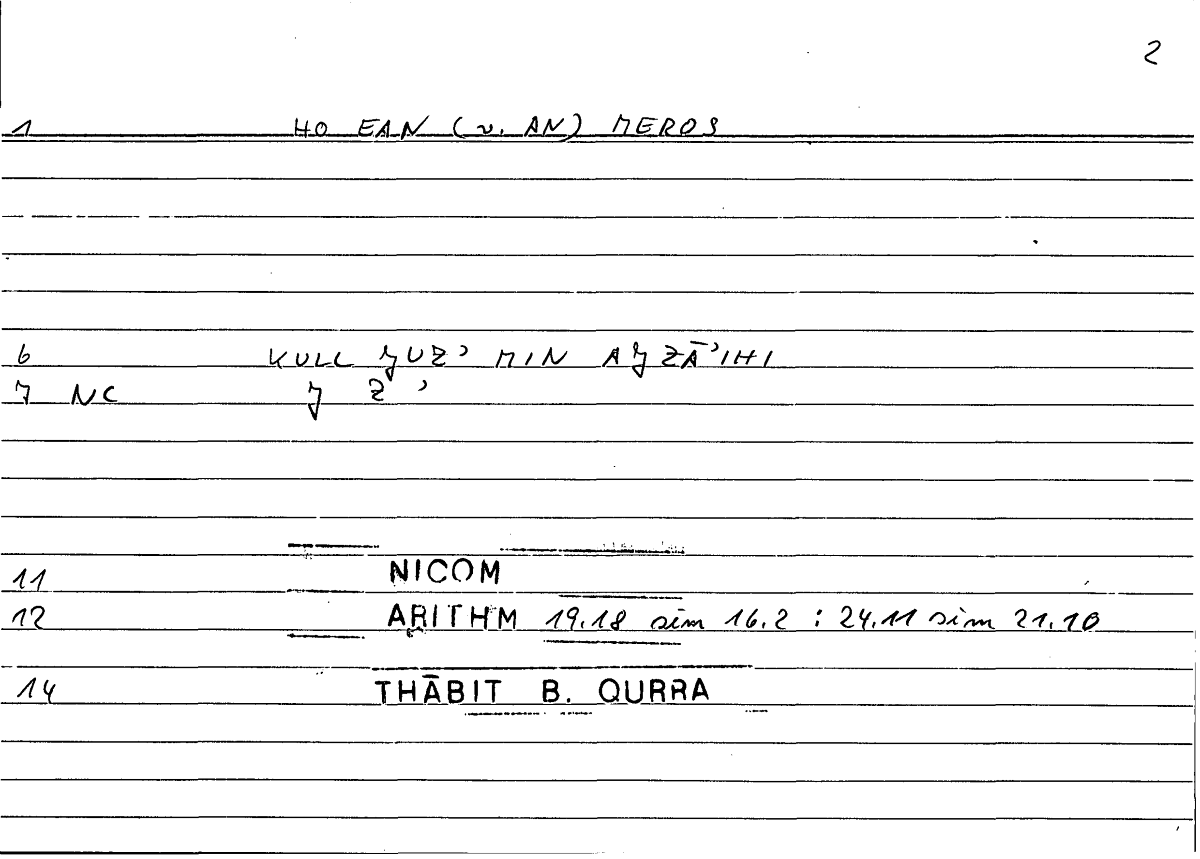 2
1 HO EAN (v. AN) MEROS
6 KULL ǦUZʾ MIN AǦZĀʾIHI
7 NC Ǧ Z ʾ
11 NICOM
12 ARITHM 19.18 sim 16.2 : 24.11 sim 21.10
14 THĀBIT B. QURRA